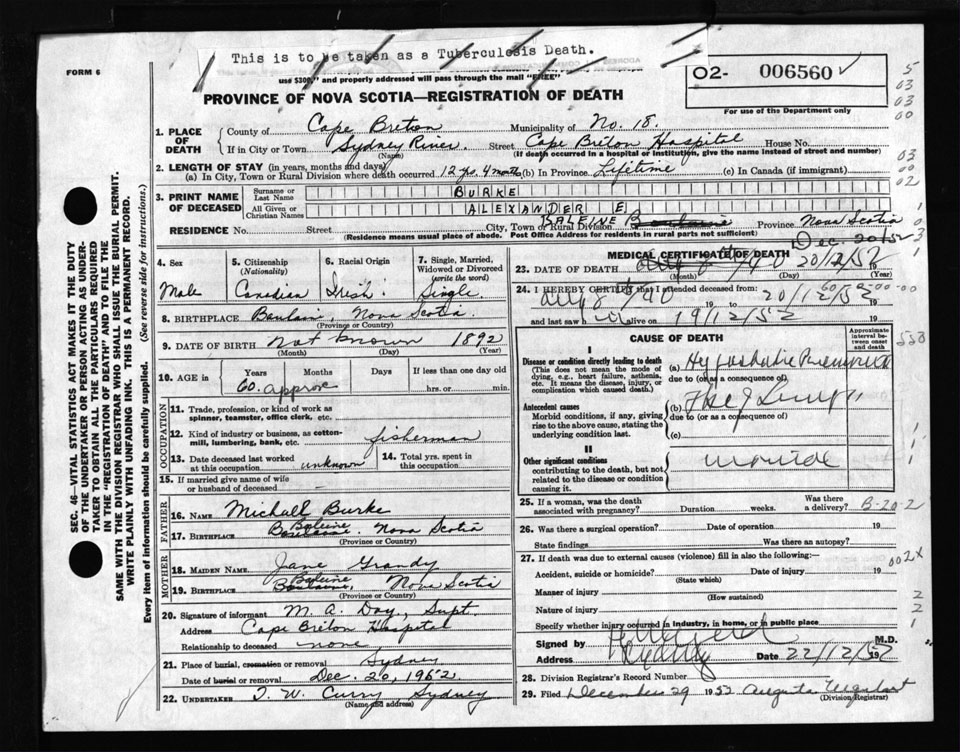 This is to be taken as a Tuberculosis Death.
FORM 6
use $300," and properly addressed will pass through the mail "FREE"
O2- 006560
For use of the Department only
PROVINCE OF NOVA SCOTIA—REGISTRATION OF DEATH
1. PLACE OF DEATH
County of Cape Breton Municipality of No. 18.
If in City or Town Sydney River. Street Cape Breton Hospital House No.
(Name) (If death occurred in a hospital or institution, give the name instead of street and number)
2. LENGTH OF STAY (in years, months and days)
(a) In City, Town or Rural Division where death occurred 12 yrs. 4 months (b) In Province Lifetime (c) In Canada (if immigrant)
3. PRINT NAME OF DECEASED
Surname or Last Name BURKE
All Given or Christian Names ALEXANDER E
RESIDENCE No. Street City, Town or Rural Division BALEINE Province Nova Scotia
(Residence means usual place of abode. Post Office Address for residents in rural parts not sufficient)
4. Sex
Male
5. Citizenship
(Nationality)
Canadian
6. Racial Origin
Irish
7. Single, Married, Widowed or Divorced
(write the word)
Single.
8. BIRTHPLACE Nova Scotia.
(Province or Country)
9. DATE OF BIRTH Not known 1892
(Month) (Day) (Year)
10. AGE in Years Months Days If less than one day old
60. approx hrs. or min.
OCCUPATION
11. Trade, profession, or kind of work as spinner, teamster, office clerk, etc.
12. Kind of industry or business, as cotton-mill, lumbering, bank, etc. fisherman
13. Date deceased last worked at this occupation unknown
14. Total yrs. spent in this occupation
15. If married give name of wife or husband of deceased
FATHER
16. NAME Michall Burke
17. BIRTHPLACE Baleine Nova Scotia
(Province or Country)
MOTHER
18. MAIDEN NAME Jane Grandy
19. BIRTHPLACE Baleine Nova Scotia
(Province or Country)
20. Signature of informant M. A. Day, Supt.
Address Cape Breton Hospital
Relationship to deceased none
21. Place of burial, cremation or removal Sydney
Date of burial or removal Dec. 20, 1952
22. UNDERTAKER T. W. Curry, Sydney
(Name and address)
MEDICAL CERTIFICATE OF DEATH
Dec. 20/52
23. DATE OF DEATH 20/12/52
(Month) (Day) (Year)
24. I HEREBY CERTIFY that I attended deceased from:
Aug 8 /40 19 to 20/12/52
and last saw h alive on 19/12/52
CAUSE OF DEATH
Approximate interval between onset and death
I
Disease or condition directly leading to death
(This does not mean the mode of dying, e.g., heart failure, asthenia, etc. It means the disease, injury, or complication which caused death.)
(a) Hypostatic Pneumonia
due to (or as a consequence of)
Antecedent causes
Morbid conditions, if any, giving rise to the above cause, stating the underlying condition last.
(b)
due to (or as a consequence of)
(c)
II
Other significant conditions
contributing to the death, but not related to the disease or condition causing it.
25. If a woman, was the death associated with pregnancy? Duration weeks. Was there a delivery?
26. Was there a surgical operation? Date of operation 19
State findings Was there an autopsy?
27. If death was due to external causes (violence) fill in also the following:—
Accident, suicide or homicide? Date of injury 19
(State which)
Manner of injury
(How sustained)
Nature of injury
Specify whether injury occurred in industry, in home, or in public place
Signed by M.D.
Address Sydney Date 22/12/52
28. Division Registrar's Record Number
29. Filed December 29 1952 Augusta Urquhart
(Division Registrar)
SEC. 46—VITAL STATISTICS ACT MAKES IT THE DUTY OF THE UNDERTAKER OR PERSON ACTING AS UNDERTAKER TO OBTAIN ALL THE PARTICULARS REQUIRED IN THE "REGISTRATION OF DEATH" AND TO FILE THE SAME WITH THE DIVISION REGISTRAR WHO SHALL ISSUE THE BURIAL PERMIT. WRITE PLAINLY WITH UNFADING INK. THIS IS A PERMANENT RECORD.
Every item of information should be carefully supplied. (See reverse side for instructions.)